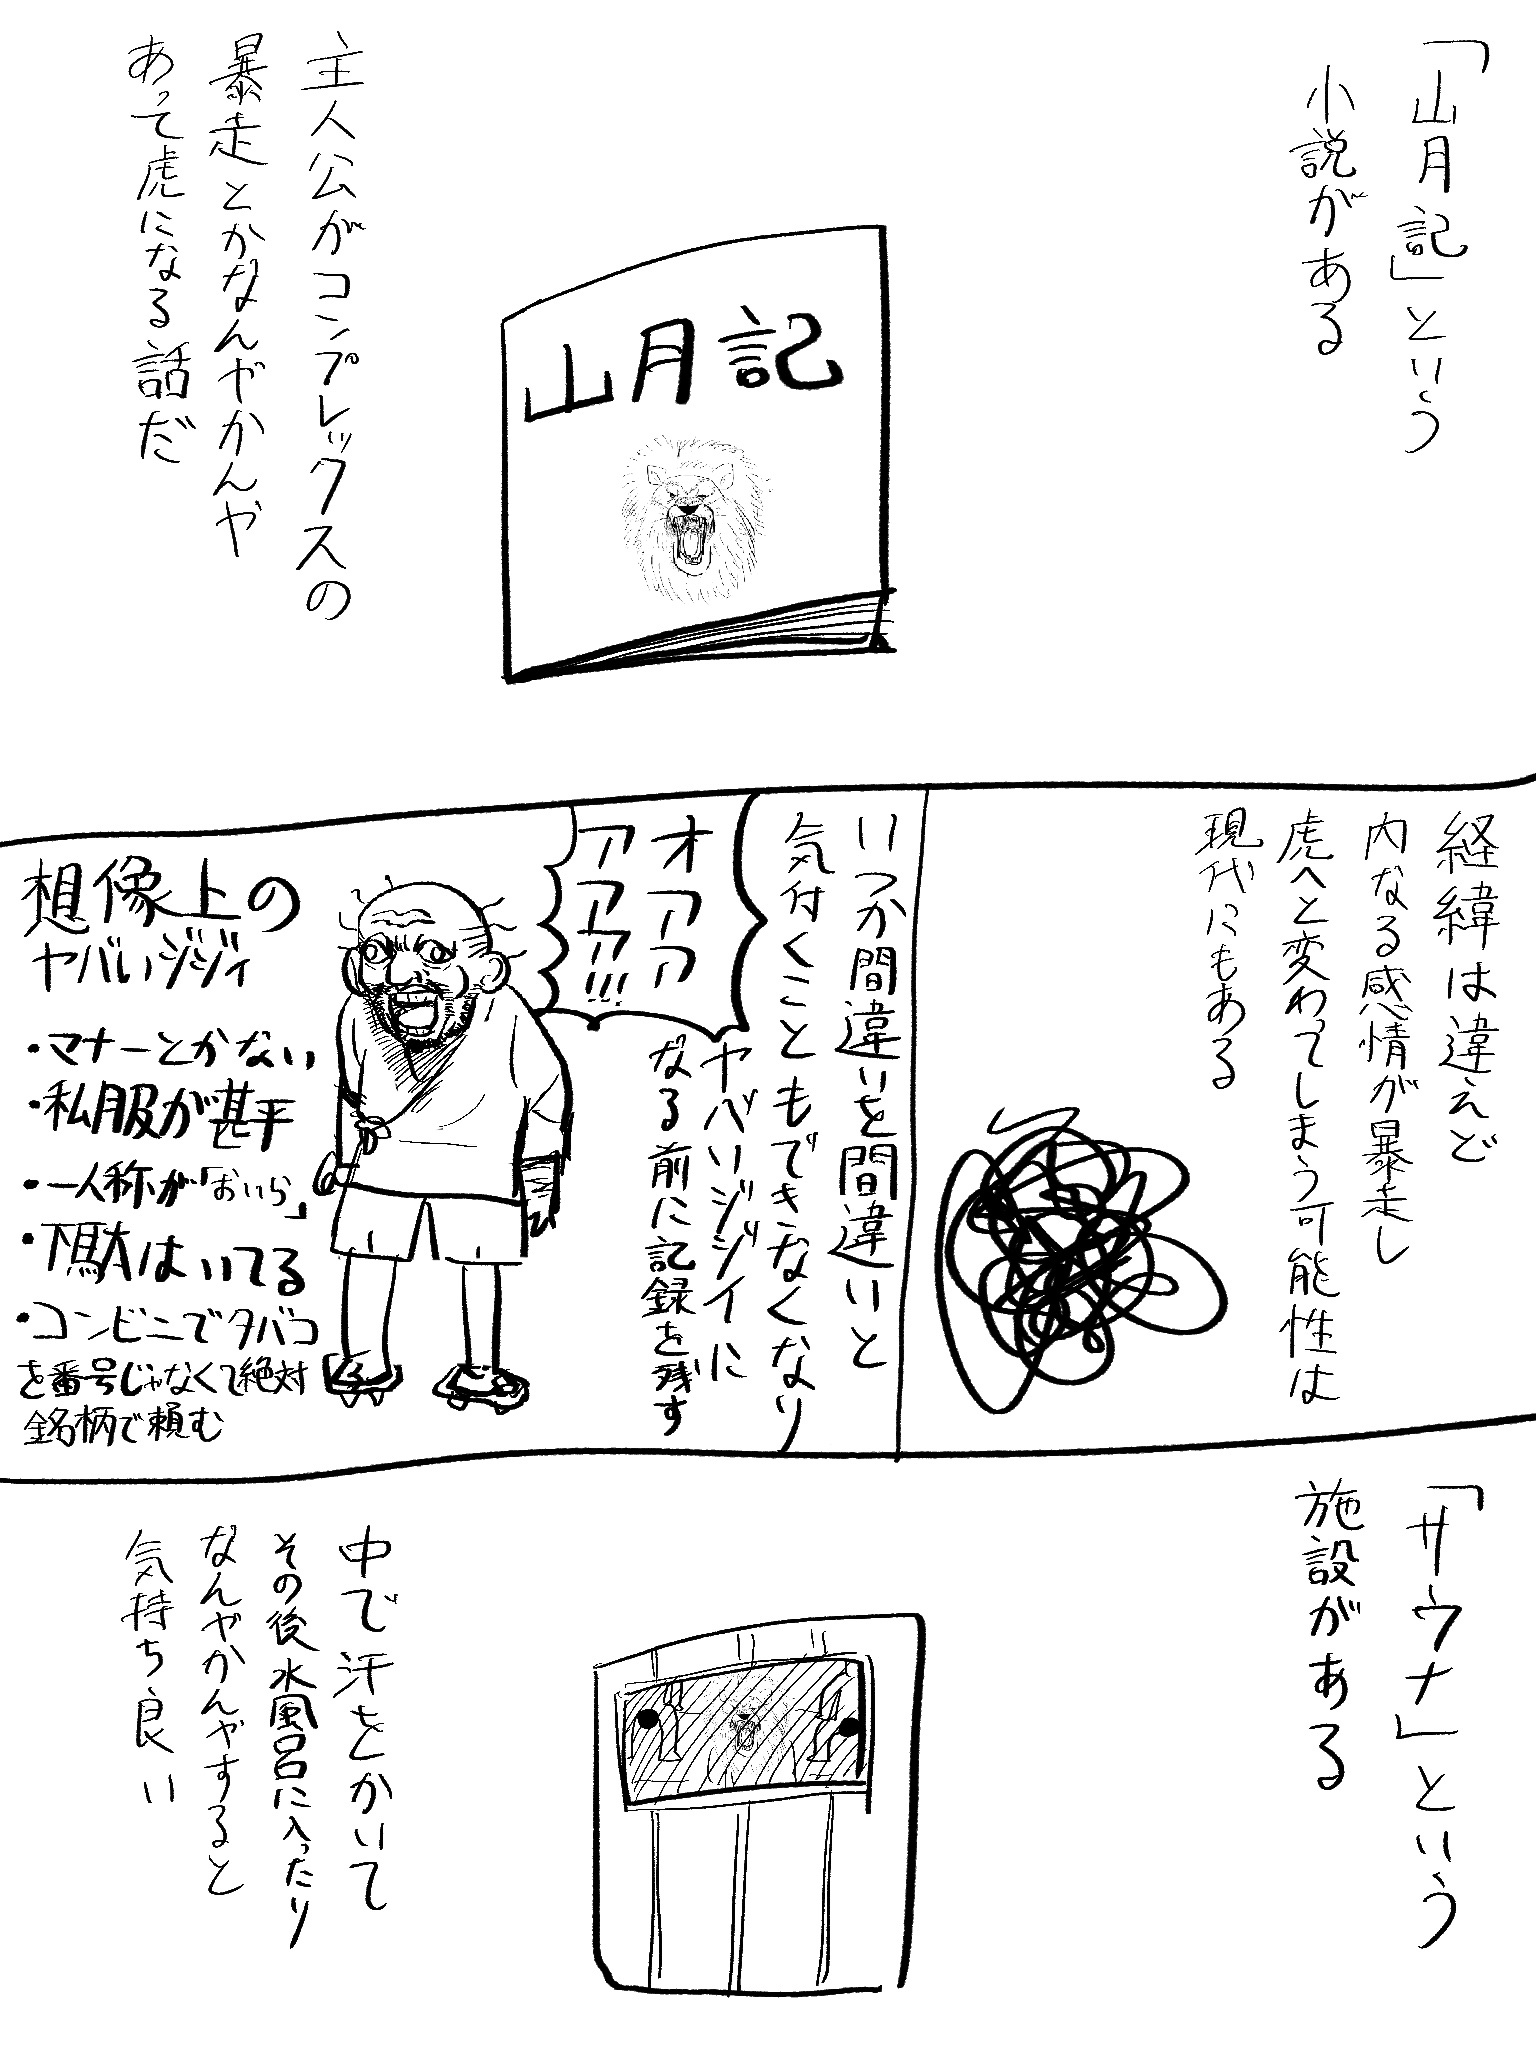 「山月記」という
小説がある
山月記
主人公がコンプレックスの
暴走とかなんやかんや
あって虎になる話だ
経緯は違えど
内なる感情が暴走し
虎へと変わってしまう可能性は
現代にもある
いつか間違いを間違いと
気付くこともできなくなり
ヤバいジジイに
なる前に記録を残す
オアアア
アアアア!!!
想像上の
ヤバいジジィ
・マナーとかない
・私服が甚平
・一人称が「おいら」
・下駄はいてる
・コンビニでタバコ
を番号じゃなくて絶対
銘柄で頼む
「サウナ」という
施設がある
中で汗をかいて
その後水風呂に入ったり
なんやかんやすると
気持ち良い